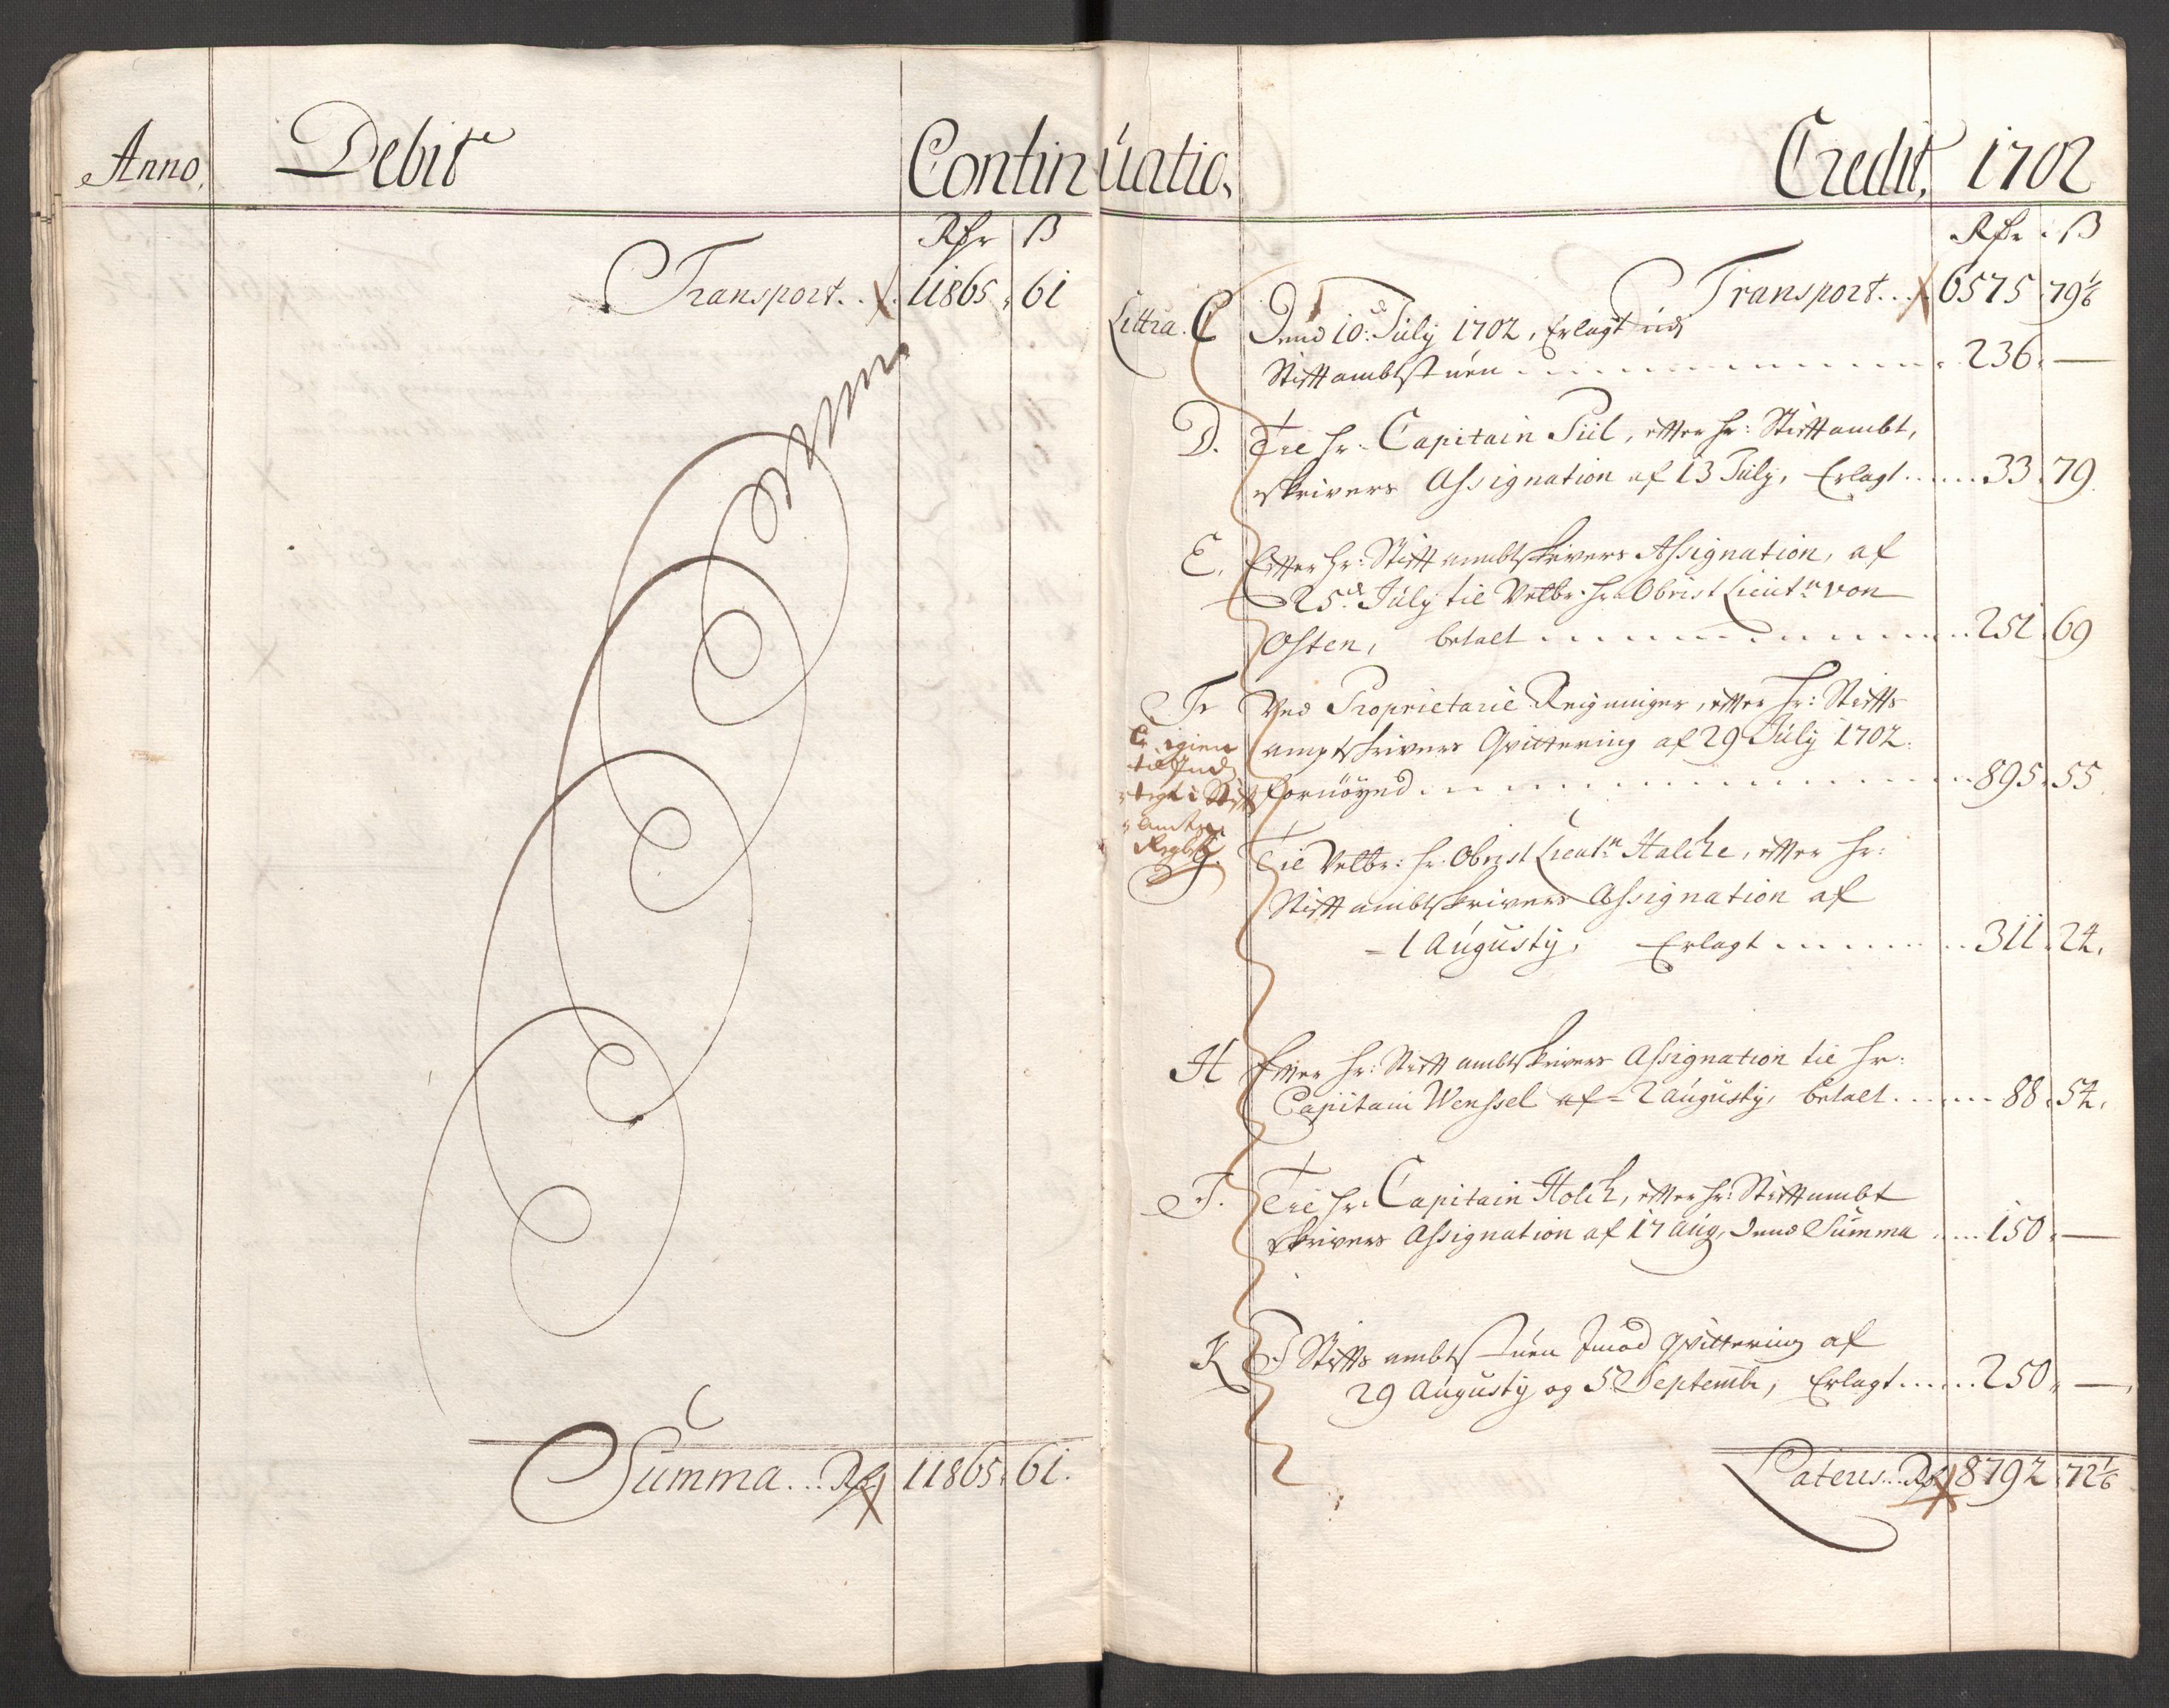 Anno.
Debit
Continuatio.
Rdr ß
Transport... 11865. 61
Summa... Rdr 11865. 61.
Credit, 1702
Rdr. ß
Transport... 6575. 79 1/6
Littra. C Dend 10:d July 1702, Erlagt udj
Stiftambtstuen ... 236. —
D. Til hr. Capitain Piil, efter hr: Stiftambt,
skrivers Assignation af 13 July, Erlagt ... 33. 79.
E. Efter hr: Stiftambtskrivers Assignation, af
25.d July til Velbr: hr. Obrist Lieut:n von
Osten, betalt ... 251. 69
F Ved Proprietarie Reigninger, efter hr: Stiffts
amptskrivers Qvittering af 29 July 1702.
fornöyed ... 895. 55.
Er igien
til Ind
tegt i Stift
amtz
Regls
G. Til Velbr: hr. Obrist Lieut:n Halche, efter hr:
Stiftambtskrivers Assignation af
1 Augusty, Erlagt ... 311. 24.
H Efter hr: Stiftambtskrivers Assignation til hr:
Capitain Wenssel af 2 augusty, betalt ... 88. 54.
J. Til hr. Capitain Holch, efter hr: Stiftambt
skrivers Assignation af 17 aug, dend Summa ... 150. —
K J Stiffts ambtstuen Jmod qvittering af
29 Augusty og 5 Septembr, Erlagt ... 250. —
Laterus.. Rdr 8792. 72 1/6